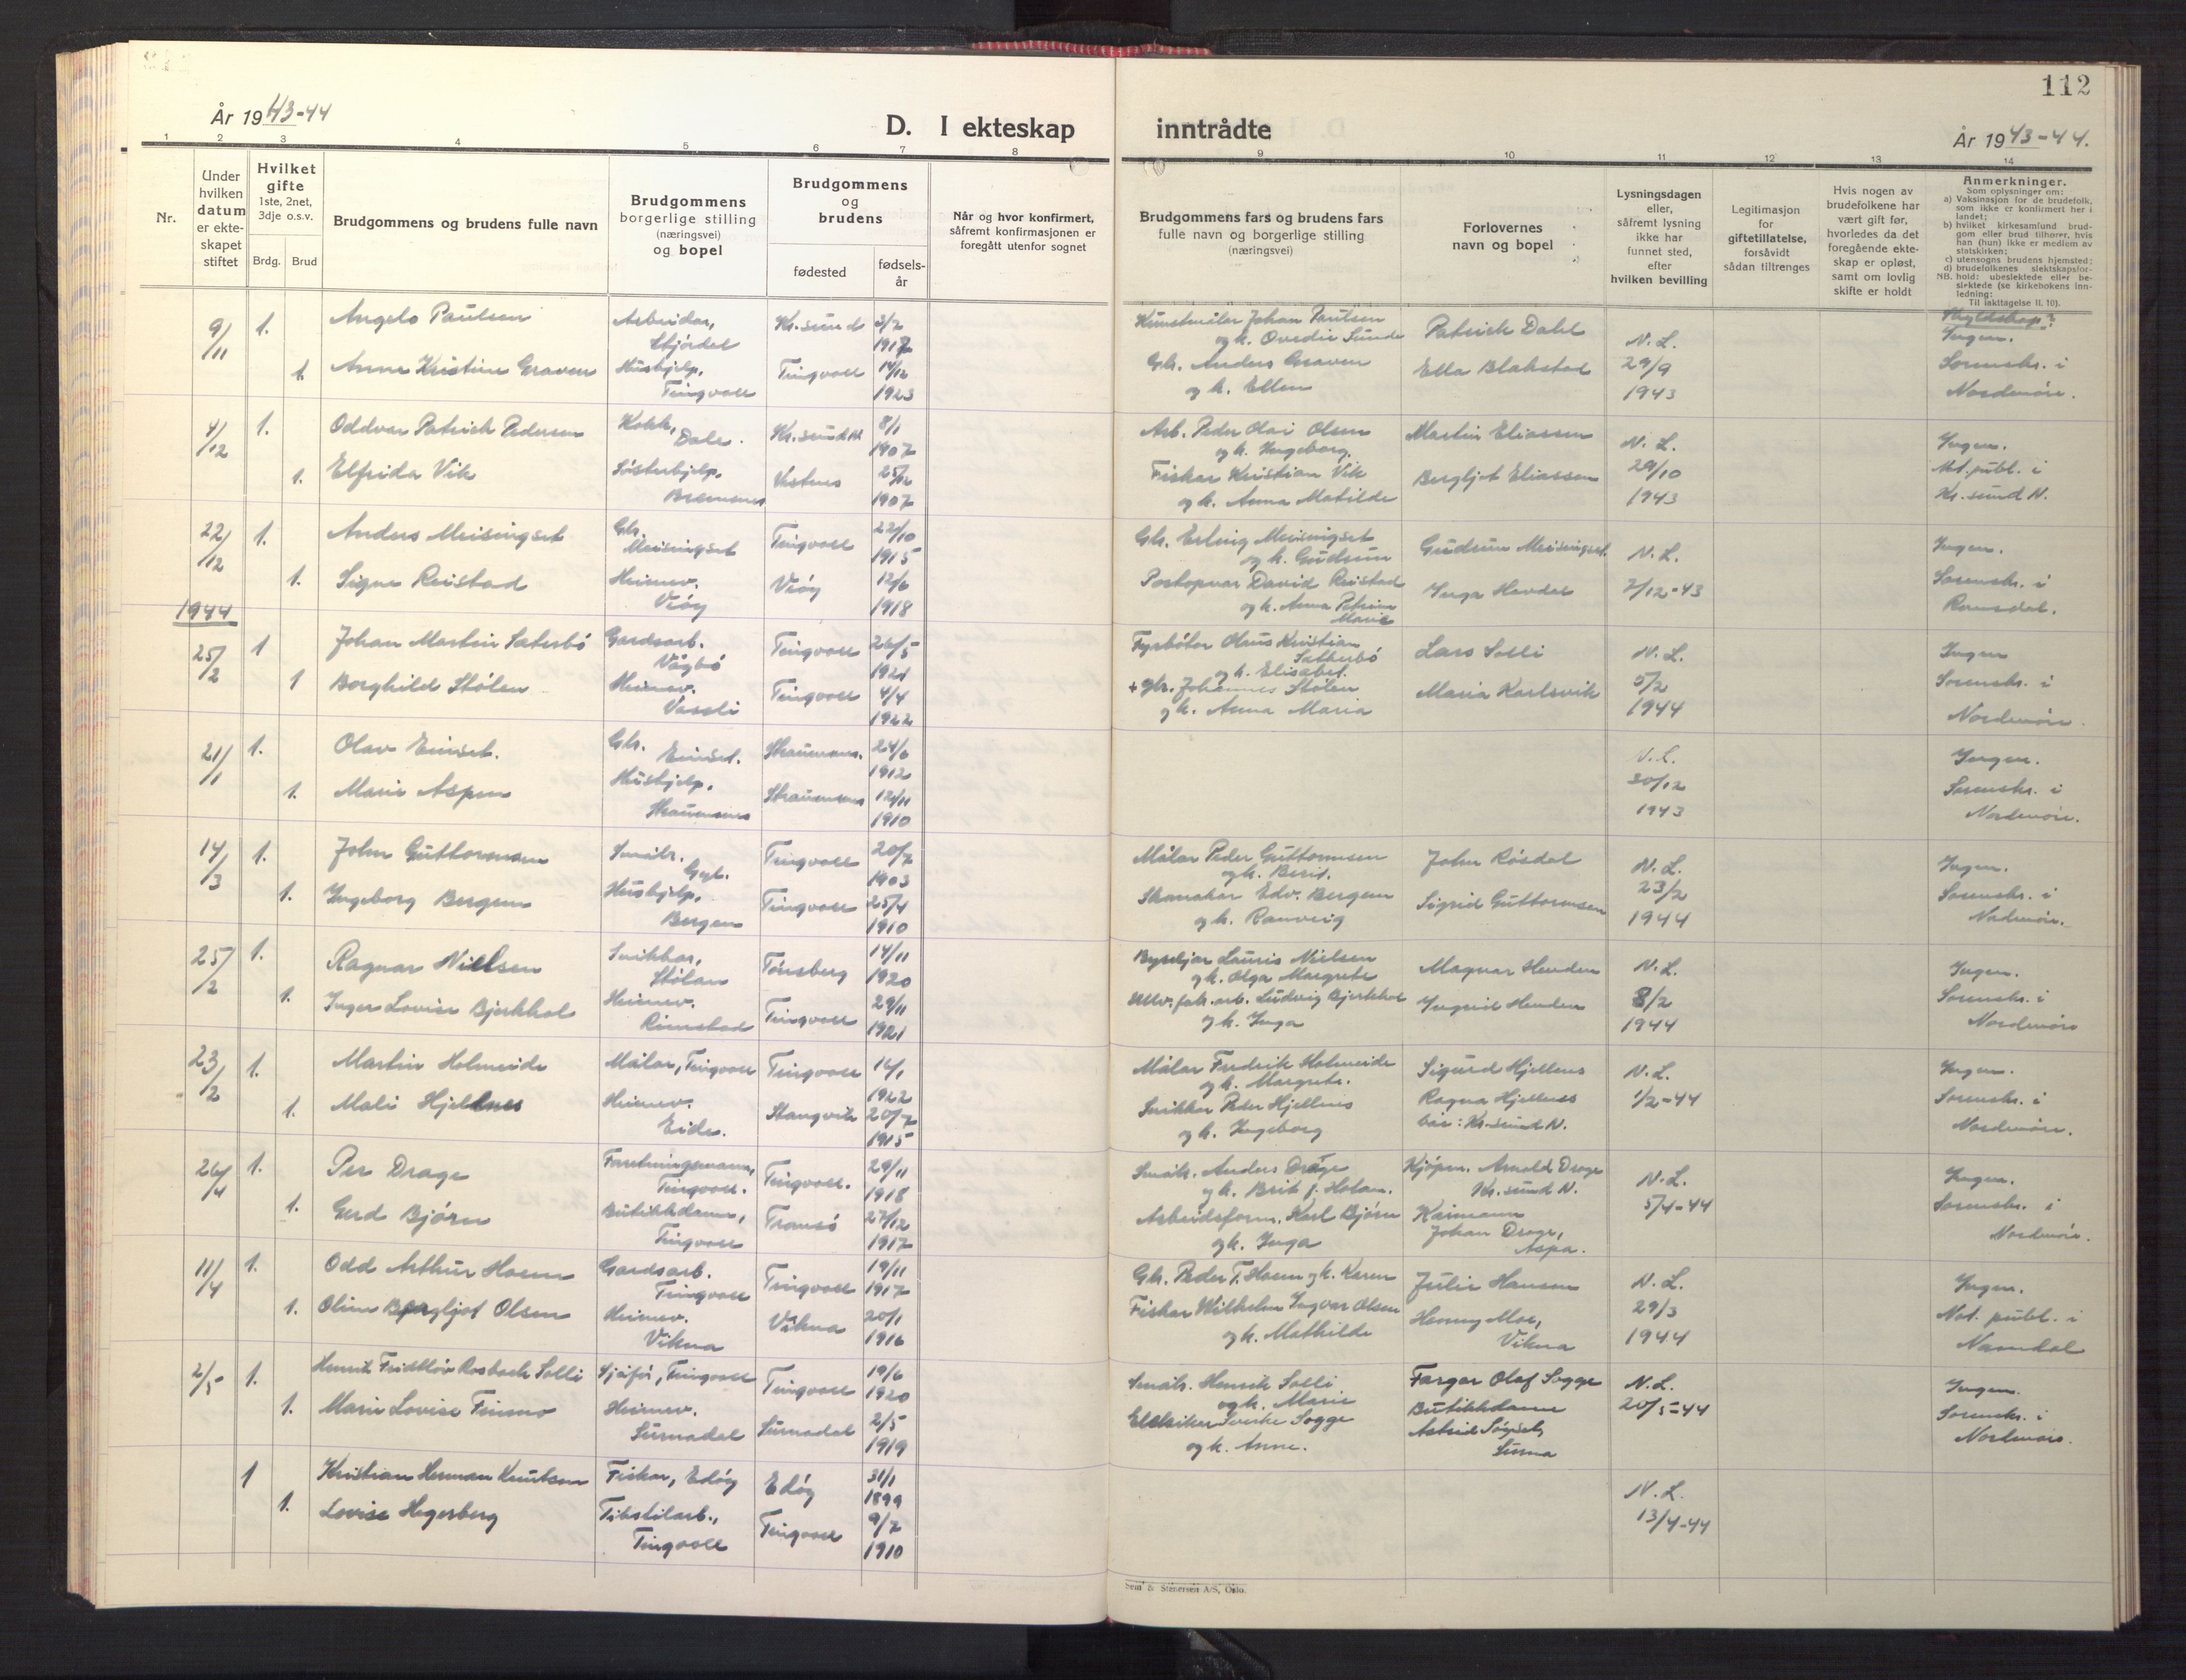 112
År 1943-44
D. I ekteskap inntrådte
År 1943-44.
1 2 3 4 5 6 7 8 9 10 11 12 13 14
Nr.
Under hvilken datum er ekteskapet stiftet
Hvilket gifte 1ste, 2net, 3dje o.s.v.
Brdg. Brud
Brudgommens og brudens fulle navn
Brudgommens borgerlige stilling (næringsvei) og bopel
Brudgommens og brudens
fødested
fødselsår
Når og hvor konfirmert, såfremt konfirmasjonen er foregått utenfor sognet
Brudgommens fars og brudens fars fulle navn og borgerlige stilling (næringsvei)
Forlovernes navn og bopel
Lysningsdagen eller, såfremt lysning ikke har funnet sted, efter hvilken bevilling
Legitimasjon for giftetillatelse, forsåvidt sådan tiltrenges
Hvis nogen av brudefolkene har vært gift før, hvorledes da det foregående ekteskap er opløst, samt om lovlig skifte er holdt
Anmerkninger.
Som oplysninger om:
a) Vaksinasjon for de brudefolk, som ikke er konfirmert her i landet;
b) hvilket kirkesamfund brudgom eller brud tilhører, hvis han (hun) ikke er medlem av statskirken;
c) utensogns brudens hjemsted;
d) brudefolkenes slektskapsforhold: ubeslektede eller beslektede (se kirkebokens innledning: Til iakttagelse II. 10).
NB.
9/11 1. Angelo Paulsen Arbeidar, Stjørdal Kr.sund 3/2 1917 Kunstmålar Johan Paulsen og k. Ovedie Sunde Patrick Dahl N.L. 29/9 1943 Skyldskap? Ingen. Sorenskr. i Nordmøre.
1. Anne Kristine Graven Hushjelp, Tingvoll Tingvoll 14/12 1923 Gbr. Anders Graven og k. Ellen Ella Blakstad
4/12 1. Oddvar Patrick Pedersen Kokk, Dale. Kr.sund N 8/1 1907 Arb. Peder Olai Olsen og k. Ingeborg. Martin Eliassen N.L. 29/10 1943 Ingen. Not. publ. i Kr.sund N.
1. Elfrida Vik Søsterhjelp, Bremsnes Vestnes 25/12 1907 Fiskar Kristian Vik og k. Anna Matilde Bergljot Eliassen
22/12 1. Anders Meisingset Gbr. Meisingset Tingvoll 22/10 1915 Gbr. Erling Meisingset og k. Gudrun Gudrun Meisingset. N.L. 7/12-43 Ingen. Sorenskr. i Romsdal.
1. Signe Reistad Heimev. Veøy Veøy 12/6 1918 Postopnar David Reistad og k. Anna Petrine Marie Inga Hovdal
1944
25/2 1 Johan Martin Sæterbø Gardsarb. Vågbø Tingvoll 26/5 1921 Fyrbøter Olaus Kristian Sætherbø og k. Elisabet. Lars Solli N.L. 5/2 1944 Ingen Sorenskr. i Nordmøre.
1 Borghild Stølen Heimev. Vassli Tingvoll 4/4 1922 + gbr. Johannes Stølen og k. Anna Maria Maria Karlsvik
21/1 1. Olav Einset. Gbr. Einset. Straumsnes. 24/6 1912 N.L. 30/12 1943 Ingen. Sorenskr. i Nordmøre.
1. Marie Aspen Hushjelp, Straumsnes Straumsnes 12/11 1910
14/3 1. John Guttormsen Småbr. Gyl. Tingvoll 20/7 1903 Målar Peder Guttormsen og k. Berit. John Røsdal N.L. 23/2 1944 Ingen. Sorenskr. i Nordmøre.
1. Ingeborg Bergem Hushjelp, Bergem Tingvoll 25/4 1910 Skomakar Edv. Bergem og k. Ranveig Sigrid Guttormsen
25/2 1. Ragnar Nielsen Snikkar, Stølan Tønsberg 14/11 1920 Lauris Nielsen og k. Olga Margrete Magnar Henden N.L. 8/2 1944 Ingen. Sorenskr. i Nordmøre
1. Inger Lovise Bjerkhol Heimev. Rimstad Tingvoll 29/11 1921 Ullv.fab.arb. Ludvig Bjerkhol og k. Inga Ingrid Henden
23/2 1. Martin Holmeide Målar, Tingvoll Tingvoll 14/1 1922 Målar Fredrik Holmeide og k. Margrete. Sigurd Hjellnes N.L. 1/2-44 Ingen. Sorenskr. i Nordmøre.
1. Mali Hjellnes Heimev. Eide. Stangvik 20/7 1915 Snikkar Peder Hjellnes og k. Ingeborg Ragna Hjellnes bæ: Kr.sund N.
26/4 1. Per Drage Forretningsmann, Tingvoll. Tingvoll. 29/11 1918 Småbr. Anders Drage og k. Brit f. Holam. Kjøpm. Arnold Drage Kr.sund N. N.L. 5/4-44 Ingen. Sorenskr. i Nordmøre.
1. Gerd Bjørn Butikkdame, Tingvoll Tromsø 27/12 1917 Arbeidsform. Karl Bjørn og k. Inga Kaimann Johan Drage, Aspa.
11/4 1. Odd Arthur Hoem Gardsarb. Tingvoll Tingvoll 19/11 1917 Gbr. Peder T. Hoem og k. Karen Julie Hansen N.L. 29/3 1944 Ingen. Not. publ. i Namdal
1. Oline Bergljot Olsen Heimev. Vikna Vikna 20/1 1916 Fiskar Wilhelm Ingvar Olsen og k. Mathilde Henny Moe, Vikna
2/5 1. Henrik Fridtklov Rosbach Solli Sjåfør, Tingvoll Tingvoll 19/6 1920 Småbr. Henrik Solli og k. Marie Fargar Olaf Sogge N.L. 20/5-44 Ingen. Sorenskr. i Nordmøre.
1. Marie Lovise Finsmo Heimev. Surnadal Surnadal 2/5 1919 Elektriker Sverke Sogge og k. Anne. Butikkdame Astrid Surna
1 Kristian Herman Knutsen Fiskar, Edøy Edøy 31/1 1899 N.L. 13/4-44
1. Lovise Hegerberg Tikstilarb., Tingvoll Tingvoll 9/7 1910
Sem & Stenersen A/S, Oslo.